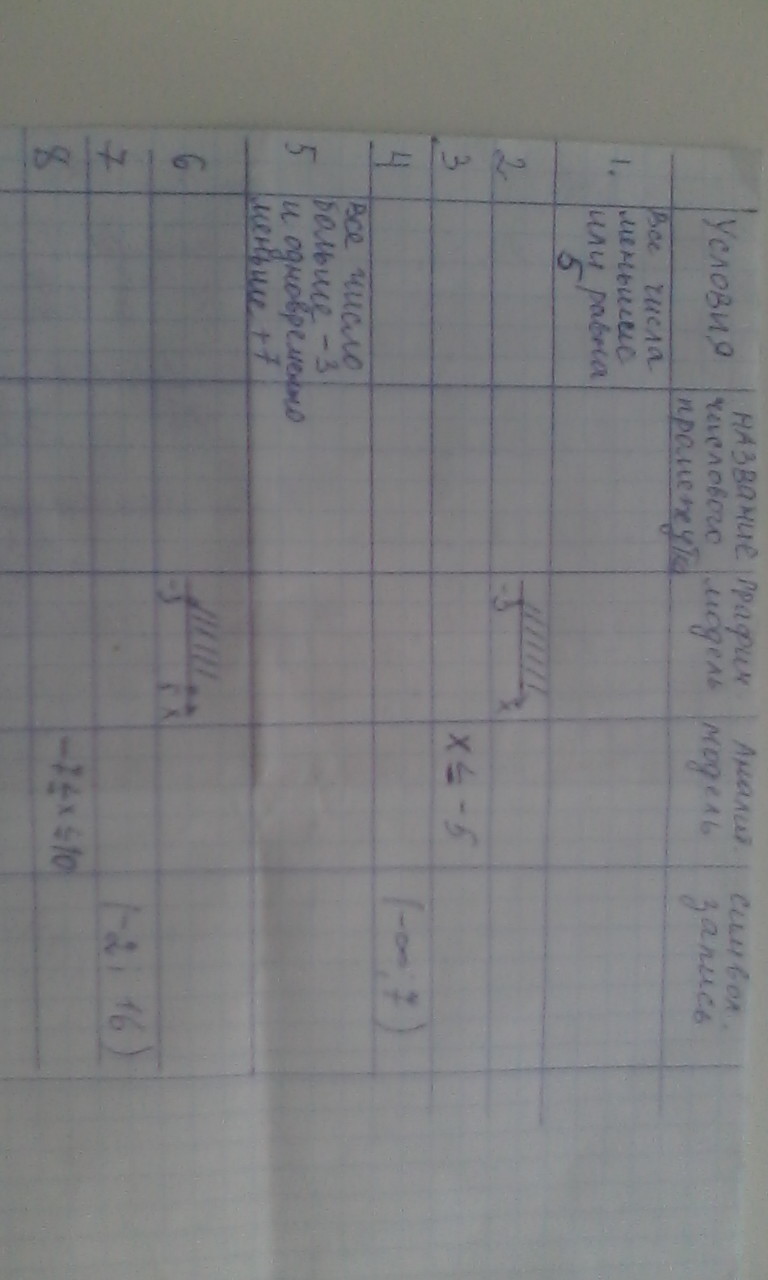 Условия
название
числового
промежутка
график
модель
Аналит.
модель
символ.
запись
1.
Все числа
меньшие
или равна
5
2
-3
x
3
x ≤ -5
4
(-∞; 7)
5
Все число
больше -3
и одновременно
меньше +7
6
x
7
(-2; 16)
8
-7≤x≤10